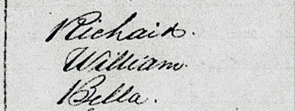 Richard.
William.
Bella.